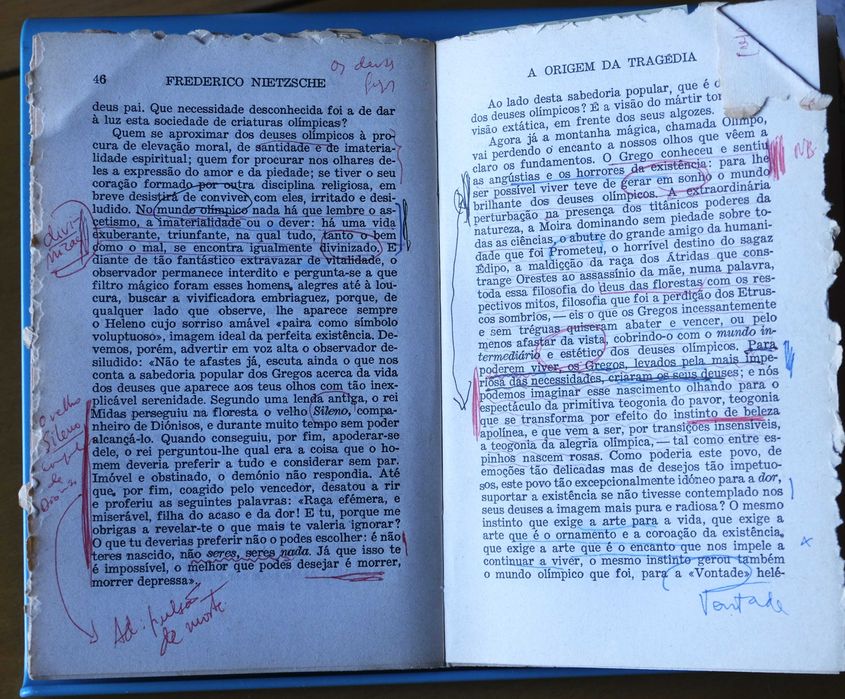 46
FREDERICO NIETZSCHE
os deuses
deus pai. Que necessidade desconhecida foi a de dar
à luz esta sociedade de criaturas olímpicas?
Quem se aproximar dos deuses olímpicos à pro-
cura de elevação moral, de santidade e de imateria-
lidade espiritual; quem for procurar nos olhares de-
les a expressão do amor e da piedade; se tiver o seu
coração formado por outra disciplina religiosa, em
breve desistirá de conviver com eles, irritado e desi-
ludido. No mundo olímpico nada há que lembre o as-
cetismo, a imaterialidade ou o dever: há uma vida
exuberante, triunfante, na qual tudo, tanto o bem
como o mal, se encontra igualmente divinizado. E
diante de tão fantástico extravazar de vitalidade, o
observador permanece interdito e pergunta-se a que
filtro mágico foram esses homens, alegres até à lou-
cura, buscar a vivificadora embriaguez, porque, de
qualquer lado que observe, lhe aparece sempre
o Heleno cujo sorriso amável «paira como símbolo
voluptuoso», imagem ideal da perfeita existência. De-
vemos, porém, advertir em voz alta o observador de-
siludido: «Não te afastes já, escuta ainda o que nos
conta a sabedoria popular dos Gregos acerca da vida
dos deuses que aparece aos teus olhos com tão inex-
plicável serenidade. Segundo uma lenda antiga, o rei
Midas perseguiu na floresta o velho Sileno, compa-
nheiro de Diónisos, e durante muito tempo sem poder
alcançá-lo. Quando conseguiu, por fim, apoderar-se
dele, o rei perguntou-lhe qual era a coisa que o ho-
mem deveria preferir a tudo e considerar sem par.
Imóvel e obstinado, o demónio não respondia. Até
que, por fim, coagido pelo vencedor, desatou a rir
e proferiu as seguintes palavras: «Raça efémera, e
miserável, filha do acaso e da dor! E tu, porque me
obrigas a revelar-te o que mais te valeria ignorar?
O que tu deverias preferir não o podes escolher: é não
teres nascido, não seres, seres nada. Já que isso te
é impossível, o melhor que podes desejar é morrer,
morrer depressa».
o velho
Sileno
de
Ad: pulsão
de morte
A ORIGEM DA TRAGÉDIA
Ao lado desta sabedoria popular, que é
dos deuses olímpicos? É a visão do mártir
visão extática, em frente dos seus algozes.
Agora já a montanha mágica, chamada Olimpo,
vai perdendo o encanto a nossos olhos que vêem a
claro os fundamentos. O Grego conheceu e sentiu
as angústias e os horrores da existência: para lhe
ser possível viver teve de gerar em sonho o mundo
brilhante dos deuses olímpicos. A extraordinária
perturbação na presença dos titânicos poderes da
natureza, a Moira dominando sem piedade sobre to-
das as ciências, o abutre do grande amigo da humani-
dade que foi Prometeu, o horrível destino do sagaz
Édipo, a maldicção da raça dos Átridas que cons-
trange Orestes ao assassínio da mãe, numa palavra,
toda essa filosofia do deus das florestas com os res-
pectivos mitos, filosofia que foi a perdição dos Etrus-
cos sombrios, — eis o que os Gregos incessantemente
e sem tréguas quiseram abater e vencer, ou pelo
menos afastar da vista, cobrindo-o com o mundo in-
termediário e estético dos deuses olímpicos. Para
poderem viver, os Gregos, levados pela mais impe-
riosa das necessidades, criaram os seus deuses; e nós
podemos imaginar esse nascimento olhando para o
espectáculo da primitiva teogonia do pavor, teogonia
que se transforma por efeito do instinto de beleza
apolínea, e que vem a ser, por transições insensíveis,
a teogonia da alegria olímpica, — tal como entre es-
pinhos nascem rosas. Como poderia este povo, de
emoções tão delicadas mas de desejos tão impetuo-
sos, este povo tão excepcionalmente idóneo para a dor,
suportar a existência se não tivesse contemplado nos
seus deuses a imagem mais pura e radiosa? O mesmo
instinto que exige a arte para a vida, que exige a
arte que é o ornamento e a coroação da existência,
que exige a arte que é o encanto que nos impele a
continuar a viver, o mesmo instinto gerou também
o mundo olímpico que foi, para a «Vontade» helé-
NB.
x
Vontade